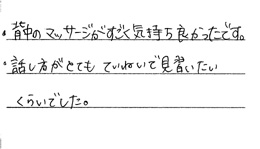 ・背中のマッサージがすごく気持ち良かったです。
・話し方がとてもていねいで見習いたい
くらいでした。